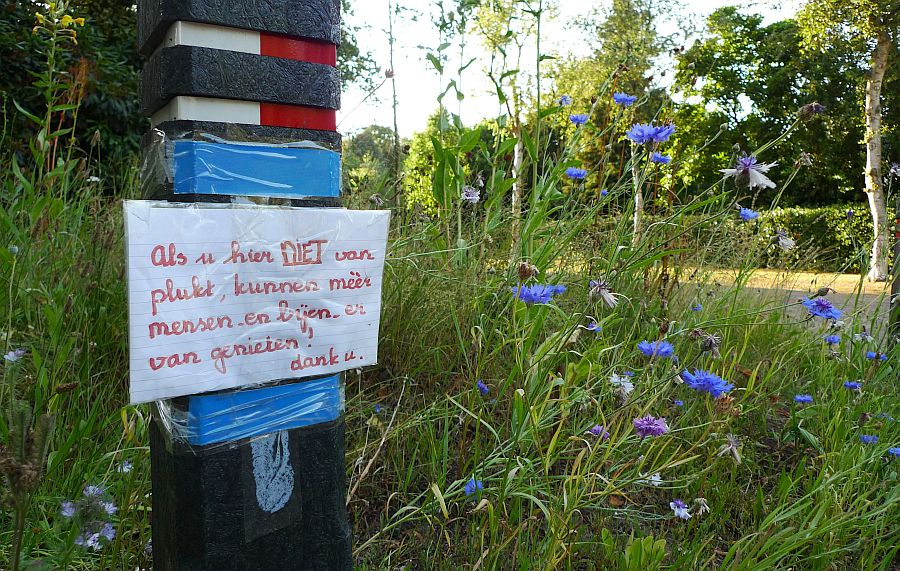 Als u hier NIET van
plukt, kunnen méér
mensen en bijen er
van genieten!
dank u.